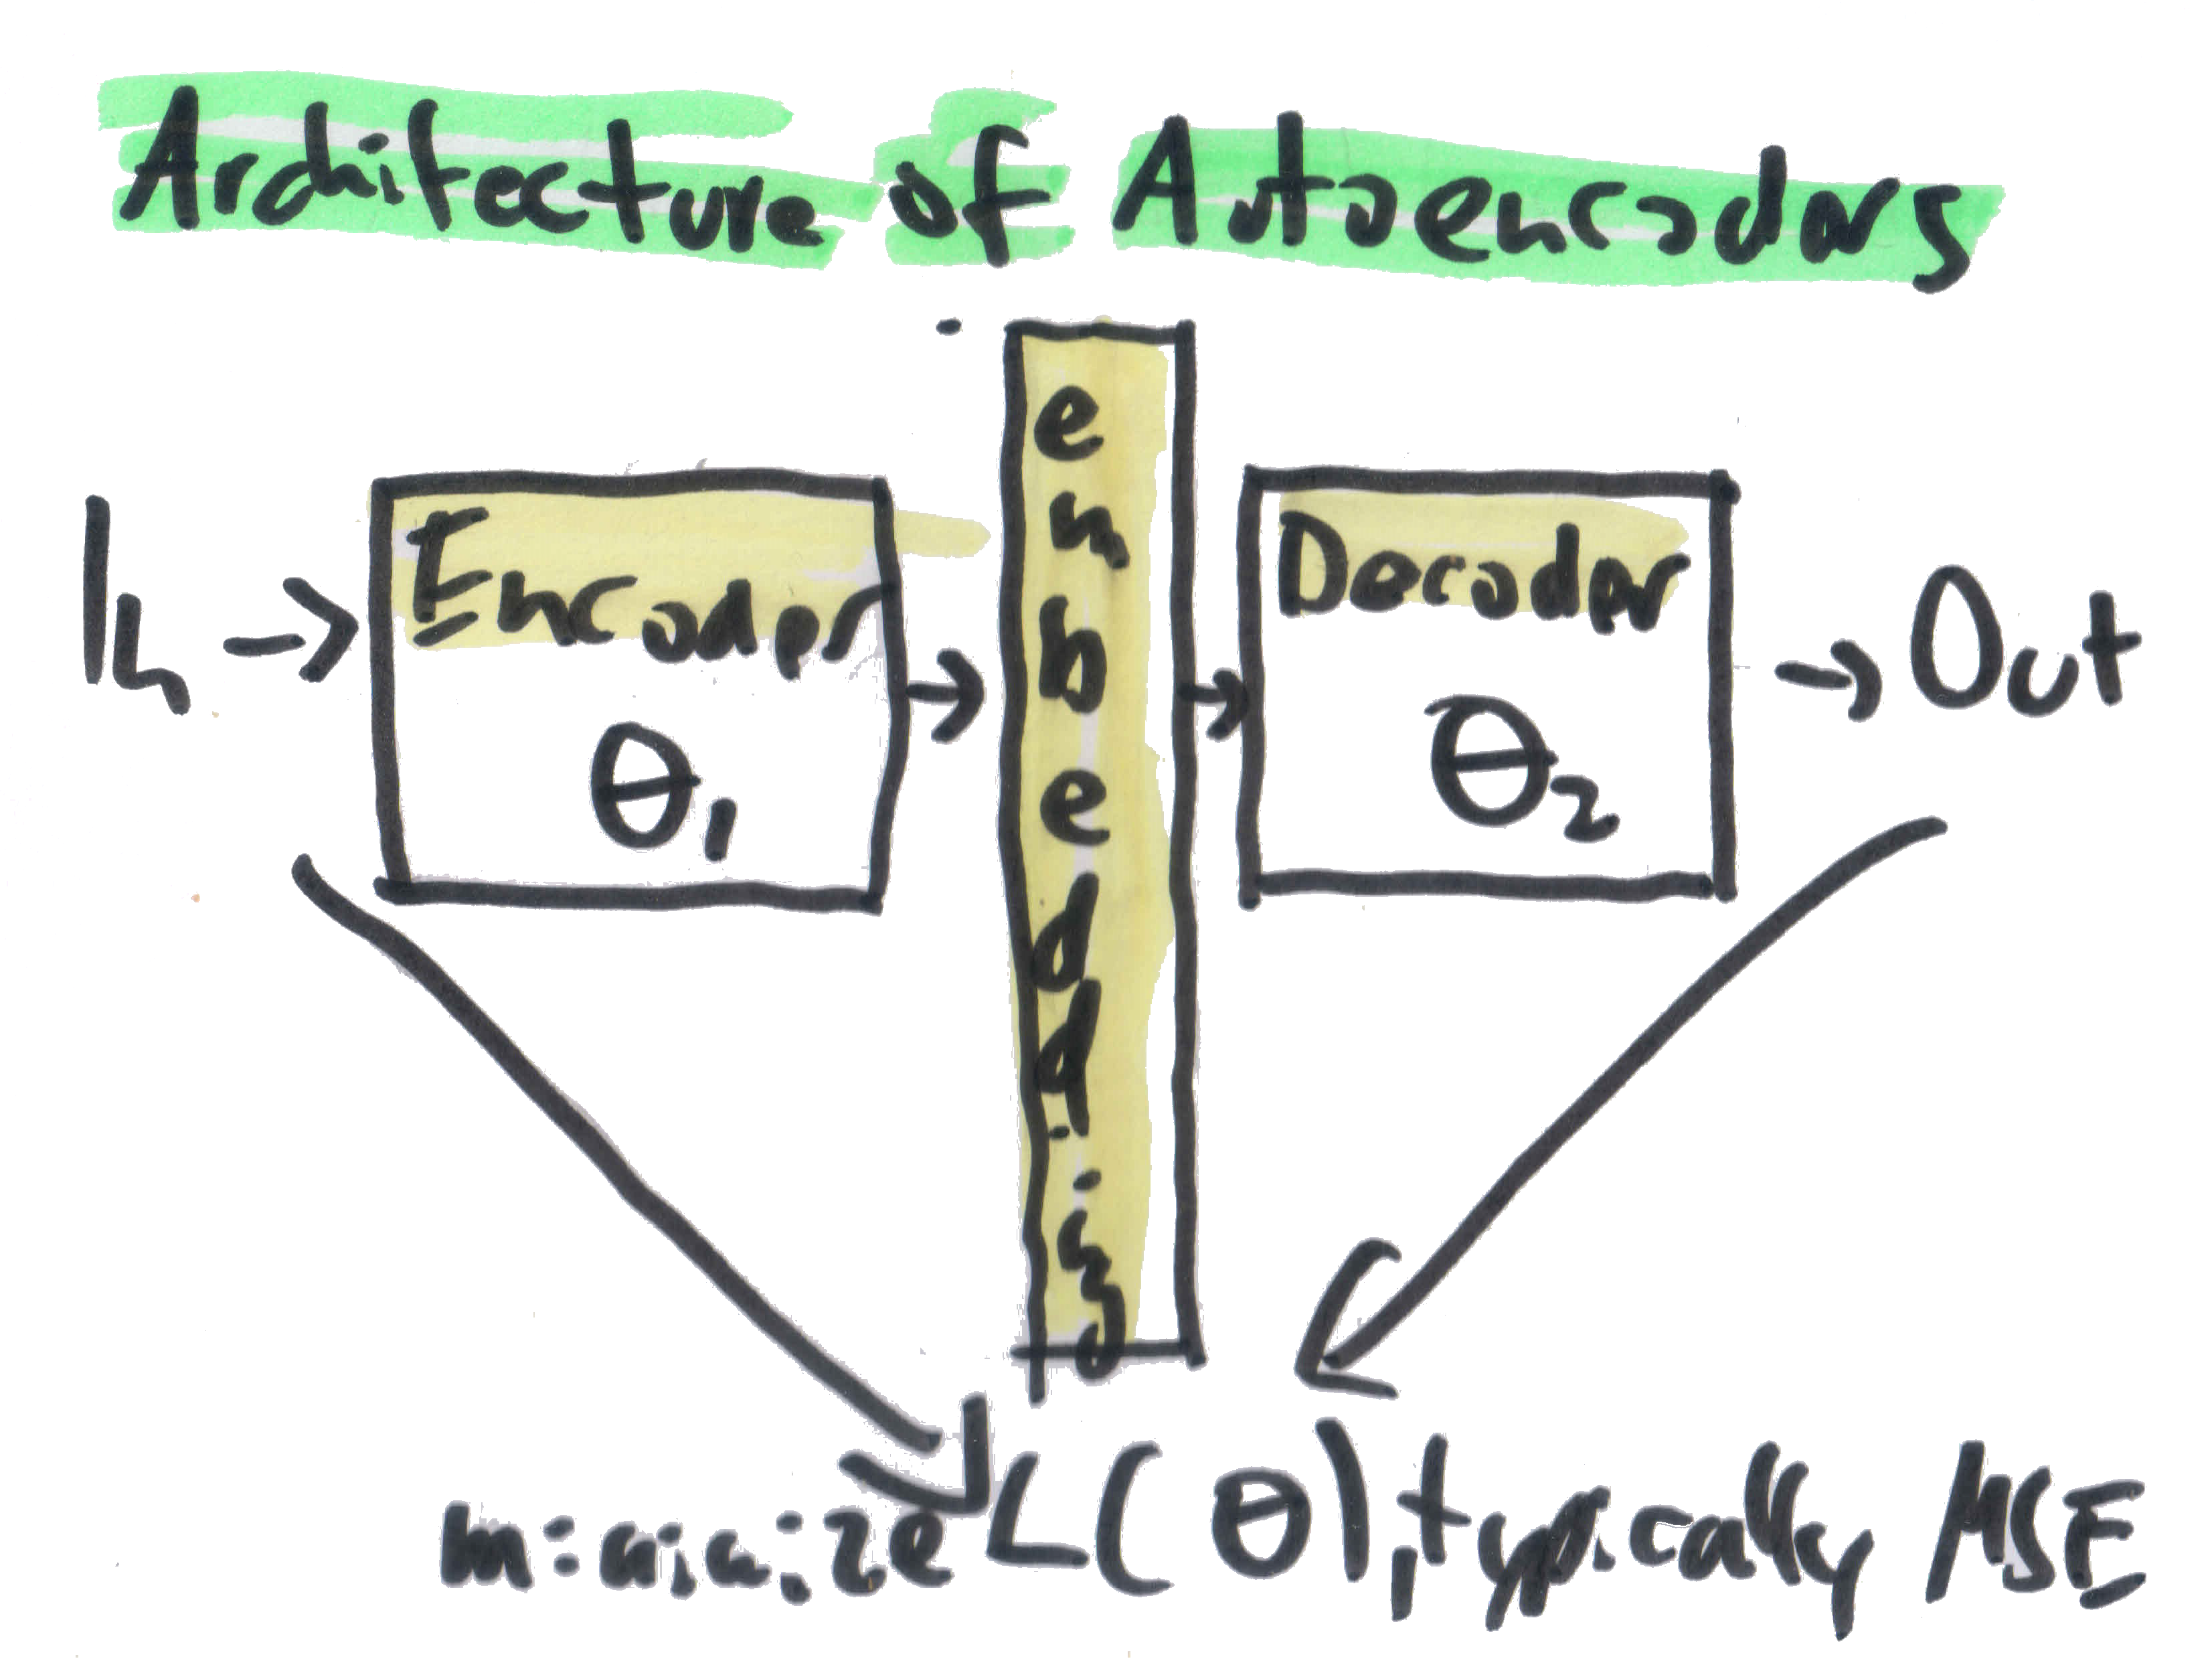 Architecture of Autoencoders
In → Encoder → embedding → Decoder → Out
θ₁
θ₂
minimize L(θ), typically MSE